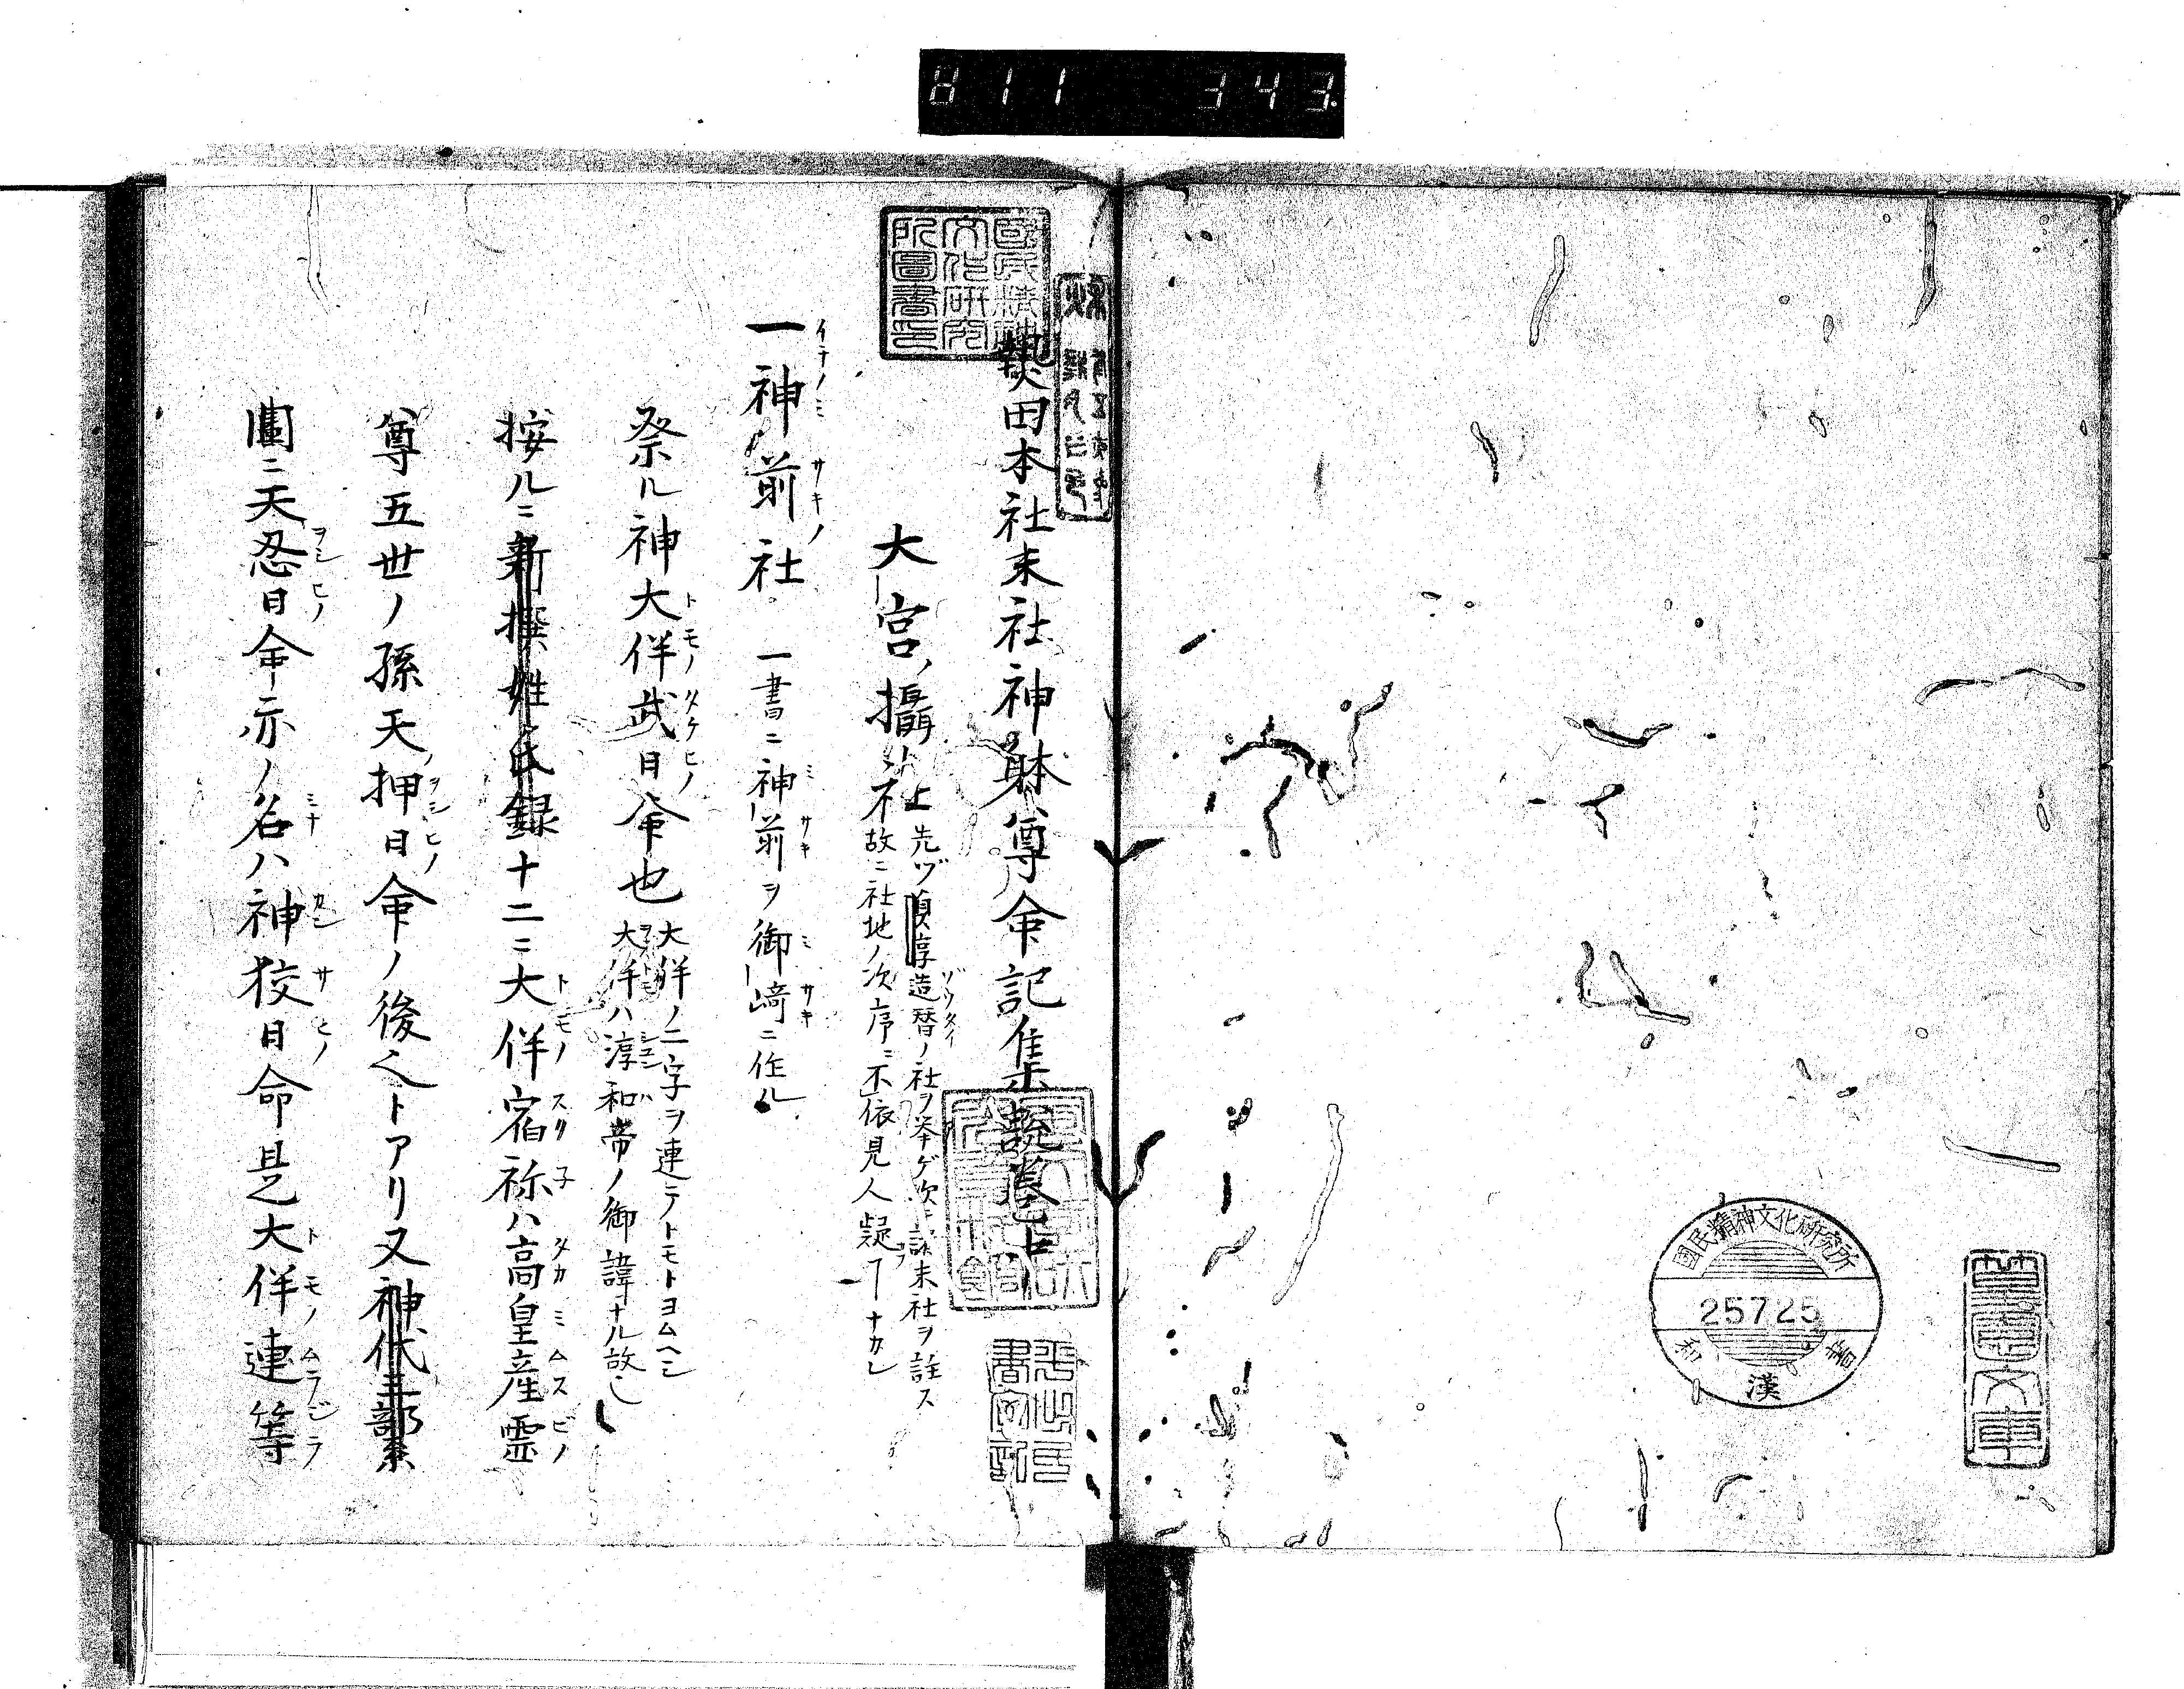 熱田本社末社神躰尊命記集説巻上
大宮ノ攝社
先ヅ貞享造替ノ社ヲ挙ゲ次ニ諸末社ヲ註ス
故ニ社地ノ次序ニ不依見人疑フヿナカレ
一神前社 一書ニ神前ヲ御﨑ニ作ル
祭ル神大伴武日命也
大伴ノ二字ヲ連テトモトヨムヘシ
大伴ハ淳和帝ノ御諱ナル故也
按ルニ新撰姓氏録十二ニ大伴宿祢ハ高皇産霊
尊五世ノ孫天押日命ノ後也トアリ又神代三部系
圖ニ天忍日命亦ノ名ハ神狡日命是大伴連等
國民精神文化研究所圖書印
國民精神文化研究所
25725
和漢書
811 343.